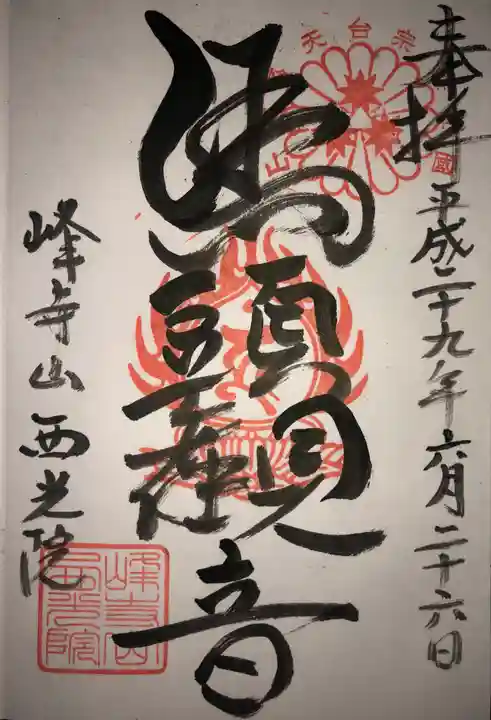 奉拝
平成二十九年六月二十六日
馬頭観音
峰寺山西光院
天台宗
山
國
峰寺山西光院